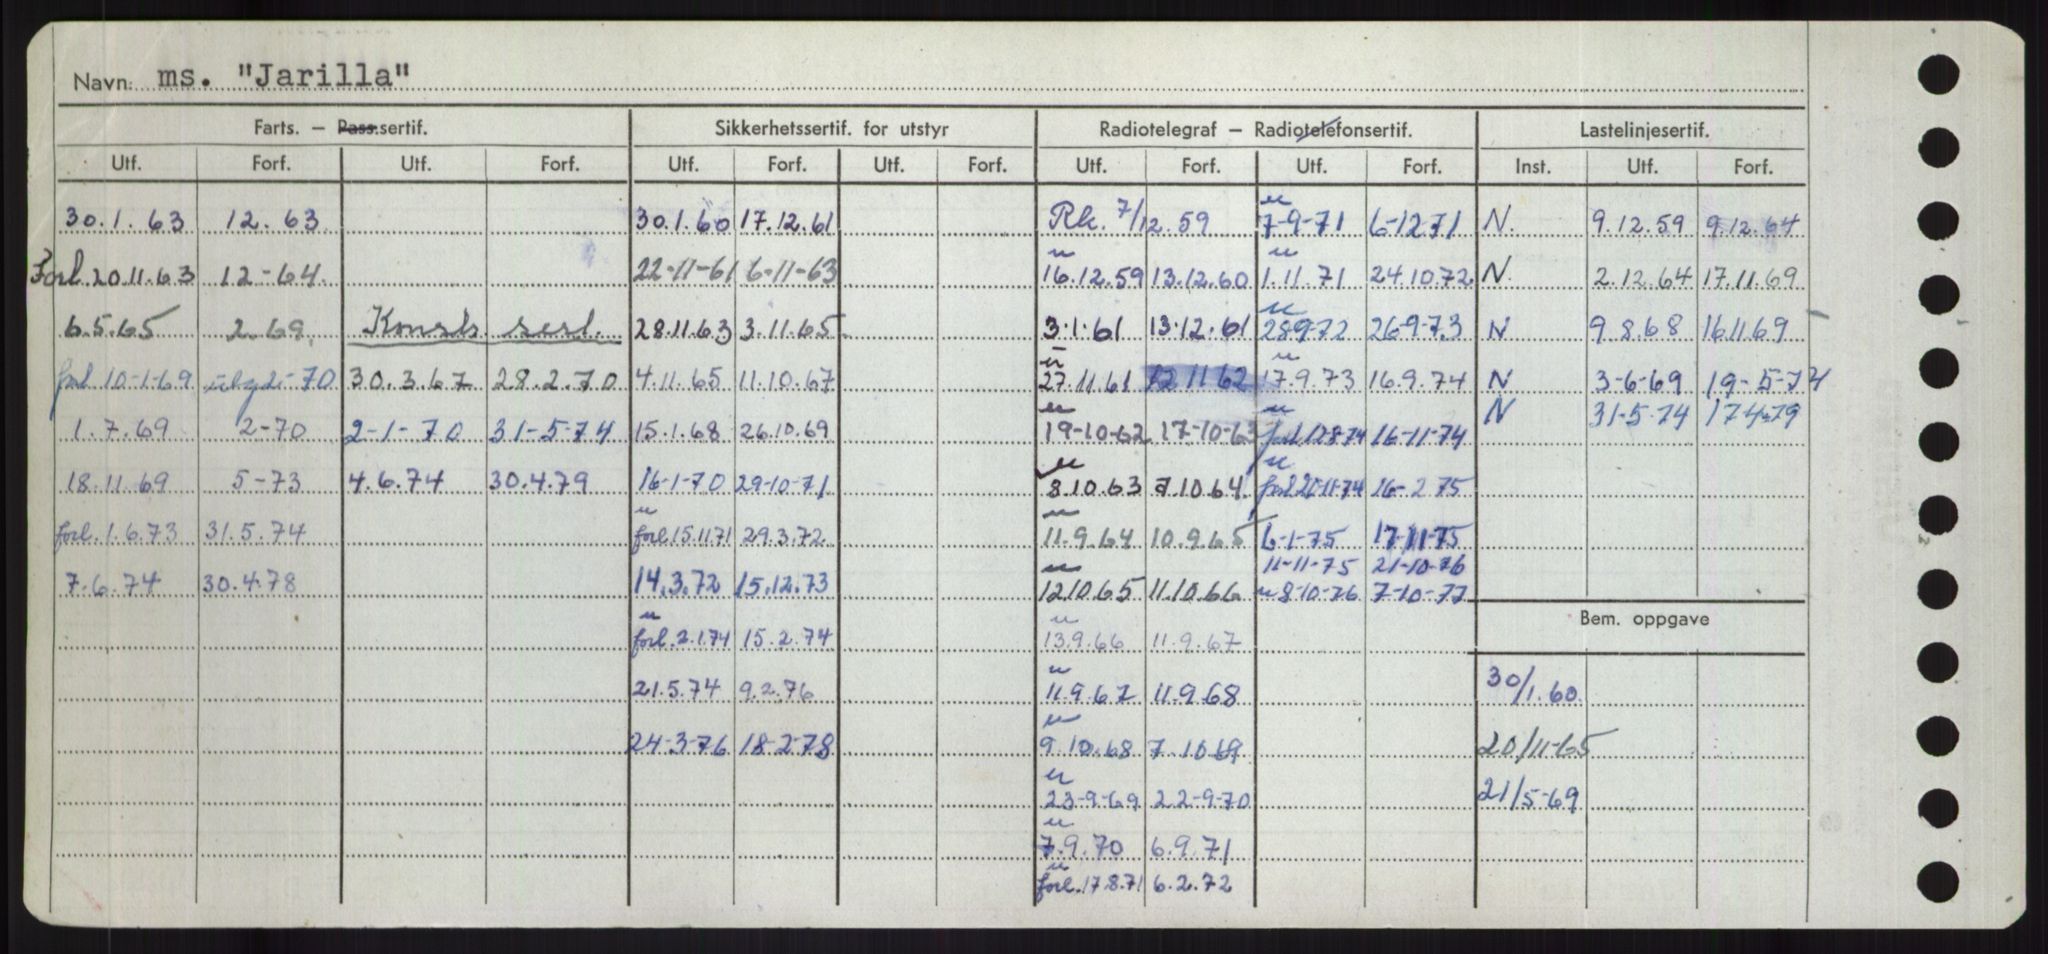 Navn: ms. "Jarilla"
Farts. – Pass.sertif. Sikkerhetssertif. for utstyr Radiotelegraf – Radiotelefonsertif. Lastelinjesertif.
Utf. Forf. Utf. Forf. Utf. Forf. Utf. Forf. Utf. Forf. Utf. Forf. Inst. Utf. Forf.
30.1.63 12.63 30.1.60 17.12.61 Rk. 7/12.59 u 7-9-71 6-12-71 N. 9.12.59 9.12.64
Forl. 20.11.63 12-64. 22-11-61 6-11-63 u 16.12.59 13.12.60 u 1.11.71 24.10.72 N. 2.12.64 17.11.69
6.5.65 2.69. 28.11.63 3.11.65 3.1.61 13.12.61 u 28-9-72 26-9-73 N 9.8.68 16.11.69
forl. 10-1-69 70 30.3.67 28.2.70 4.11.65 11.10.67 u 27.11.61 12 11 62 u 17.9.73 16.9.74 N 3-6-69 19-5-74
1.7.69 2-70 2-1-70 31-5-74 15.1.68 26.10.69 u 19-10-62 17-10-63 u forl 12-8-74 16-11-74 N 31-5-74 17-4-79
18.11.69 5-73 4.6.74 30.4.79 16-1-70 29-10-71 u 8.10.63 7.10.64 u forl 20-11-74 16-2-75
forl. 1.6.73 31.5.74 u forl. 15.11.71 29.3.72 u 11.9.64 10.9.65 6-1-75 17-11-75
11-11-75 21-10-76
7.6.74 30.4.78 14.3.72 15.12.73 u 12.10.65 11.10.66 u 8-10-76 7-10-77
Bem. oppgave
u forl. 2.1.74 15.2.74 u 13.9.66 11.9.67
21.5.74 9.2.76 u 11.9.67 11.9.68 30/1.60.
24-3-76 18-2-78 u 9.10.68 7.10.69 20/11-65
u 23-9-69 22-9-70 21/5-69
u 7.9.70 6.9.71
u forl. 17.8.71 6.2.72